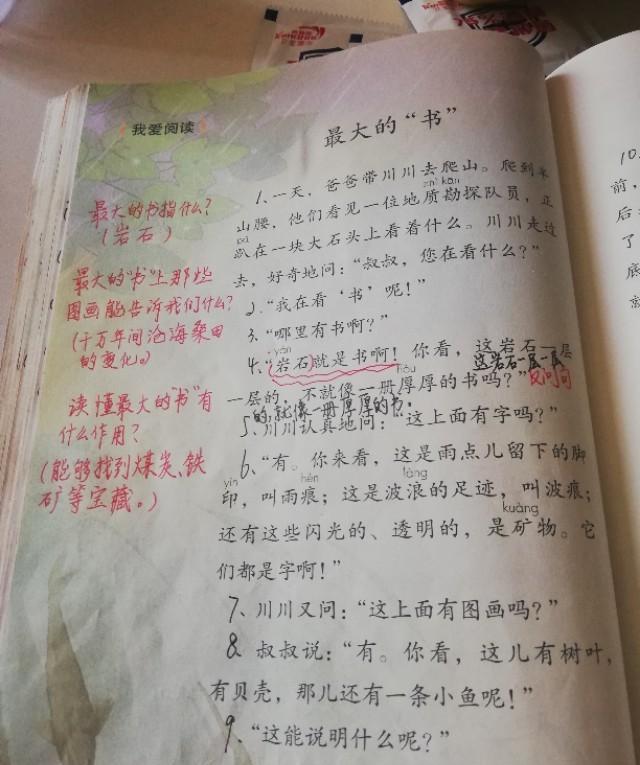 我爱阅读
最大的“书”
最大的书指什么？
（岩石）
最大的“书”上那些
图画能告诉我们什么？
（千万年间沧海桑田
的变化。）
读懂最大的“书”有
什么作用？
（能够找到煤炭、铁
矿等宝藏。）
1、一天，爸爸带川川去爬山。爬到半
zhì kān
山腰，他们看见一位地质勘探队员，正
pā
趴在一块大石头上看着什么。川川走过
去，好奇地问：“叔叔，您在看什么？”
2、“我在看‘书’呢！”
3、“哪里有书啊？”
yán
4、“岩石就是书啊！你看，这岩石一层
这岩石一层一层
hòu
一层的，不就像一册厚厚的书吗？”
反问句
的，就像一册厚厚的书。
5、川川认真地问：“这上面有字吗？”
6、“有。你来看，这是雨点儿留下的脚
yìn hén làng
印，叫雨痕；这是波浪的足迹，叫波痕；
kuàng
还有这些闪光的、透明的，是矿物。它
们都是字啊！”
7、川川又问：“这上面有图画吗？”
8、叔叔说：“有。你看，这儿有树叶，
有贝壳，那儿还有一条小鱼呢！”
9、“这能说明什么呢？”
10、
前，
后
了
底